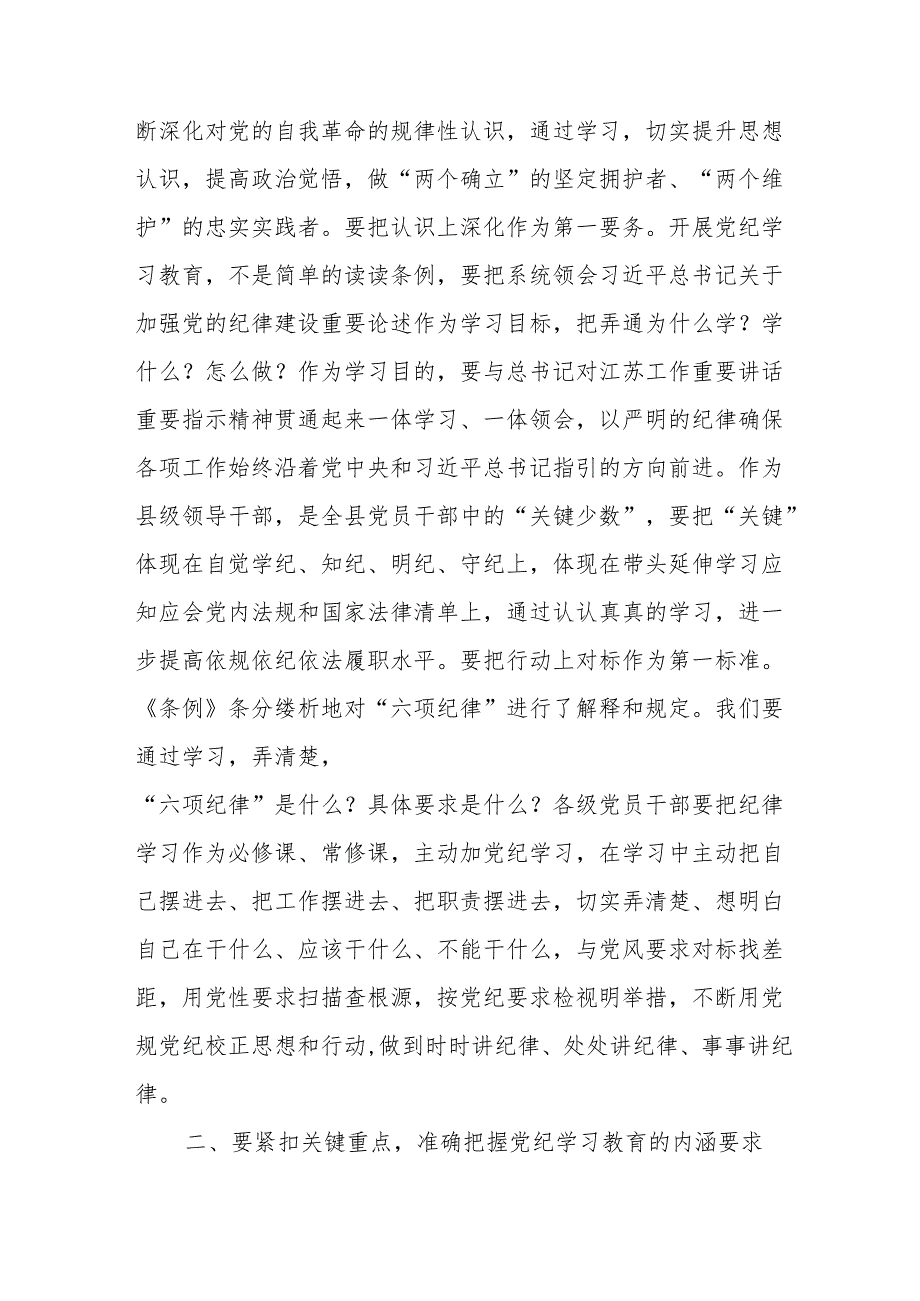 断深化对党的自我革命的规律性认识，通过学习，切实提升思想
认识，提高政治觉悟，做“两个确立”的坚定拥护者、“两个维
护”的忠实实践者。要把认识上深化作为第一要务。开展党纪学
习教育，不是简单的读读条例，要把系统领会习近平总书记关于
加强党的纪律建设重要论述作为学习目标，把弄通为什么学？学
什么？怎么做？作为学习目的，要与总书记对江苏工作重要讲话
重要指示精神贯通起来一体学习、一体领会，以严明的纪律确保
各项工作始终沿着党中央和习近平总书记指引的方向前进。作为
县级领导干部，是全县党员干部中的“关键少数”，要把“关键”
体现在自觉学纪、知纪、明纪、守纪上，体现在带头延伸学习应
知应会党内法规和国家法律清单上，通过认认真真的学习，进一
步提高依规依纪依法履职水平。要把行动上对标作为第一标准。
《条例》条分缕析地对“六项纪律”进行了解释和规定。我们要
通过学习，弄清楚，
“六项纪律”是什么？具体要求是什么？各级党员干部要把纪律
学习作为必修课、常修课，主动加党纪学习，在学习中主动把自
己摆进去、把工作摆进去、把职责摆进去，切实弄清楚、想明白
自己在干什么、应该干什么、不能干什么，与党风要求对标找差
距，用党性要求扫描查根源，按党纪要求检视明举措，不断用党
规党纪校正思想和行动,做到时时讲纪律、处处讲纪律、事事讲纪
律。
二、要紧扣关键重点，准确把握党纪学习教育的内涵要求